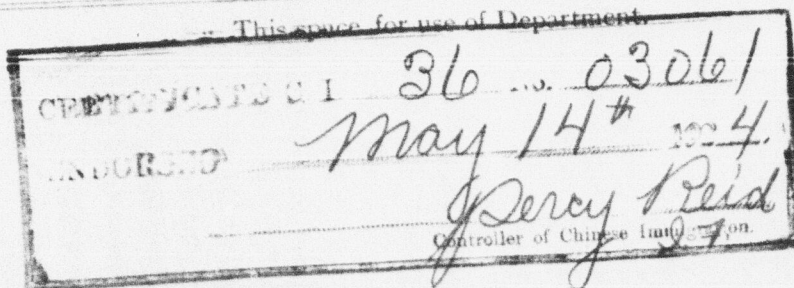 This space for use of Department.
CERTIFICATE C. I 36 NO. 03061
ENDORSED May 14th 1924.
Percy Reid
Controller of Chinese Immigration.